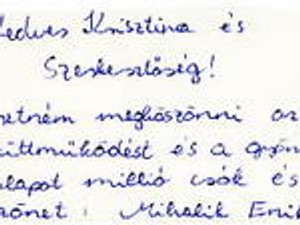 Kedves Krisztina és
Szerkesztőség!
etném megköszönni az
üttműködést és a gyön
alapot millió csók és
zönet: Mihalik Enik